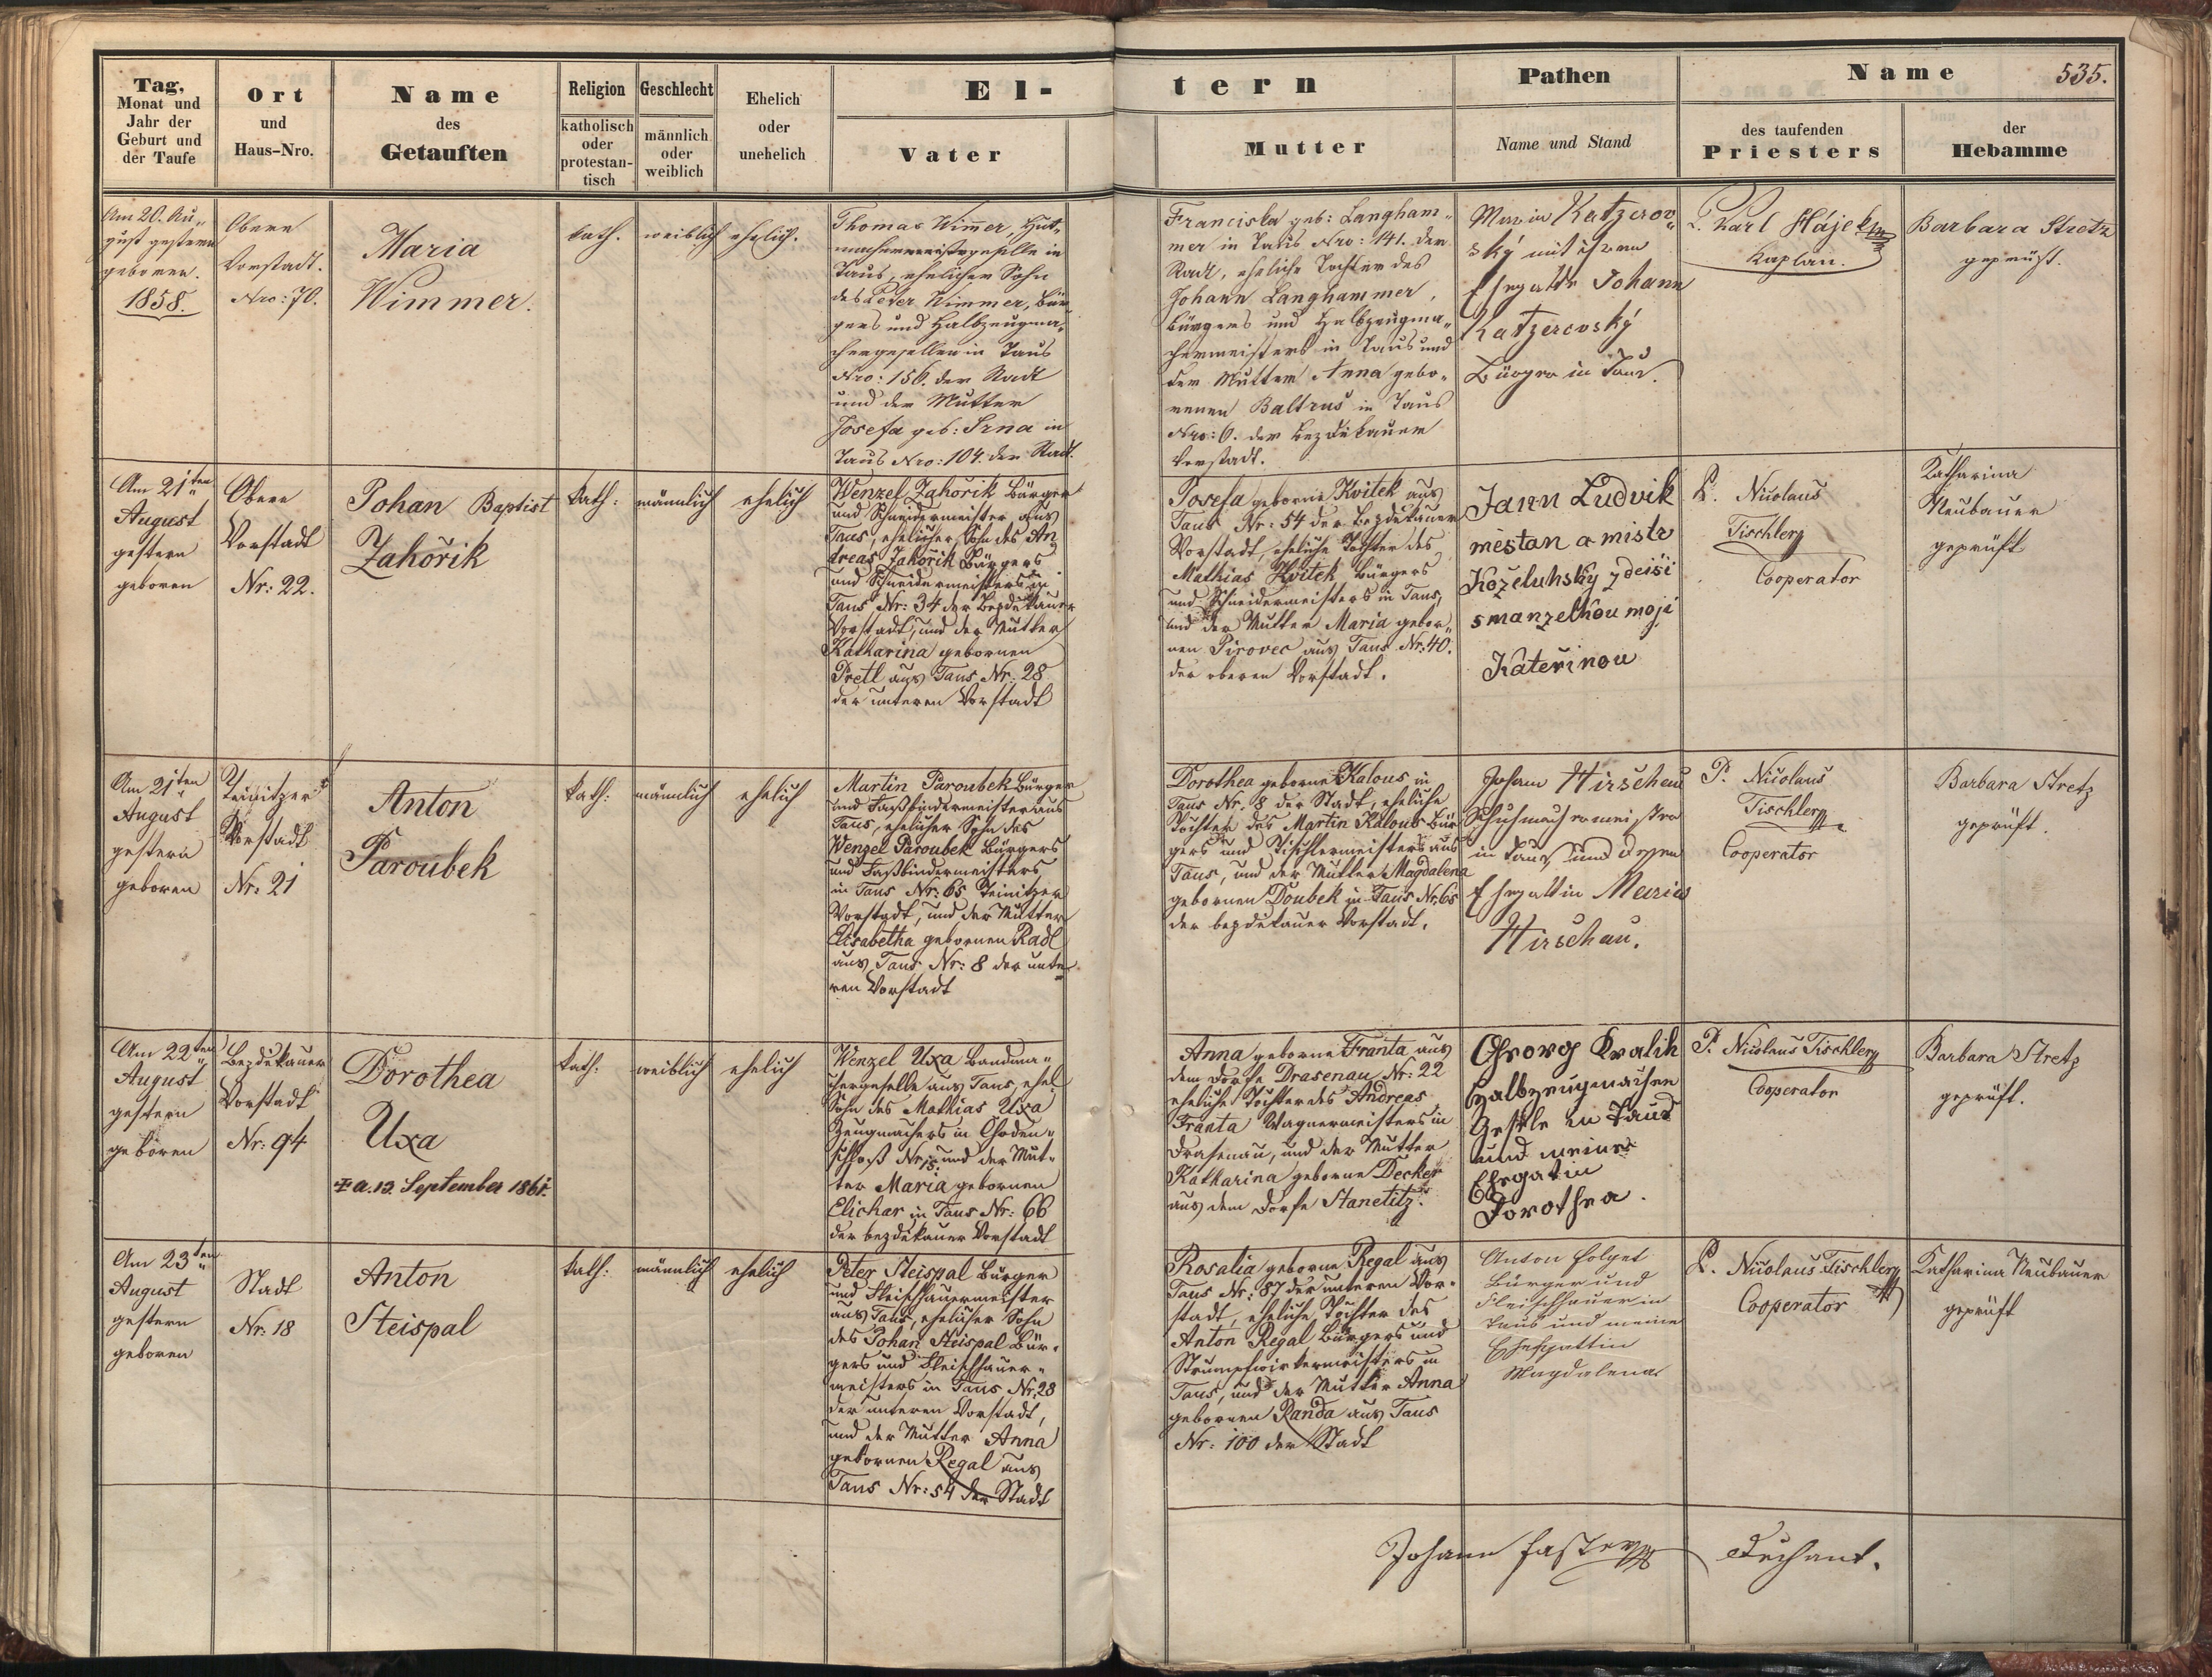 Tag,
Monat und
Jahr der
Geburt und
der Taufe
Ort
und
Haus-Nro.
Name
des
Getauften
Religion
katholisch
oder
protestan-
tisch
Geschlecht
männlich
oder
weiblich
Ehelich
oder
unehelich
El-
Vater
tern
Mutter
Pathen
Name und Stand
Name
535.
des taufenden
Priesters
der
Hebamme
Am 20. Au„
gust gestern
geboren.
1858.
Obere
Vorstadt.
Nro: 70.
Maria
Wimmer.
kath.
weiblich
ehelich.
Thomas Wimer, Hut„
machermeistergeselle in
Taus, ehelicher Sohn
des Peter Wimmer, Bür
gers und Halbzeugma„
chergesellen in Taus
Nro: 156. der Stadt
und der Mutter
Josefa geb: Srna in
Taus Nro: 104. der Stadt.
Franciska geb: Langham„
mer in Taus Nro: 141. der
Stadt, eheliche Tochter des
Johann Langhammer,
Bürgers und Halbzeugma„
chermeisters in Taus und
der Mutter Anna gebo„
renen Baltrus in Taus
Nro: 6. der Bezdĕkauer
Vorstadt.
Maria Katzerov„
ský mit ihren
Ehegatte Johann
Katzerovský
Bürger in Taus.
P. Karl Hájek
Kaplan.
Barbara Stretz
geprüft.
Am 21ten
August
gestern
geboren
Obere
Vorstadt
Nr: 22.
Johan Baptist
Zahořik
kath:
männlich
ehelich
Wenzel Zahořik Bürger
und Schneidermeister aus
Taus, ehelicher Sohn des An
dreas Zahořik Bürgers
und Schneidermeisters in
Taus Nr: 34 der Bezdĕkauer
Vorstadt, und der Mutter
Katharina gebornen
Pretl aus Taus Nr: 28
der unteren Vorstadt
Josefa geborne Kvitek aus
Taus Nr: 54 der Bezdĕkauer
Vorstadt, eheliche Tochter des
Mathias Kvitek Bürgers
und Schneidermeisters in Taus,
und der Mutter Maria gebor„
nen Pirovec aus Taus Nr: 40.
der oberen Vorstadt.
Jann Ludvik
mĕstan a mistr
Koželuhsky zdeiši
s manzelkou moji
Kateřinou
P. Nicolaus
Tischler
Cooperator
Katharina
Neubauer
geprüft
Am 21ten
August
gestern
geboren
Teinitzer
Vorstadt
Nr: 21
Anton
Paroubek
kath:
männlich
ehelich
Martin Paroubek Bürger
und Faßbindermeister aus
Taus, ehelicher Sohn des
Wenzel Paroubek Bürgers
und Faßbindermeisters
in Taus Nr: 65 Teinitzer
Vorstadt, und der Mutter
Elisabetha gebornen Radl
aus Taus Nr: 8 der unte„
ren Vorstadt
Dorothea geborne Kalous in
Taus Nr. 8 der Stadt, eheliche
Tochter des Martin Kalous Bür
gers und Tischlermeisters aus
Taus, und der Mutter Magdalena
gebornen Doubek in Taus Nr: 65
der bezdĕkauer Vorstadt.
Johann Hirschau
Schuhmachermeister
in Taus und dessen
Ehegattin Maria
Hirschau.
P. Nicolaus
Tischler
Cooperator
Barbara Stretz
geprüft.
Am 22ten
August
gestern
geboren
Bezdĕkauer
Vorstadt
Nr: 94
Dorothea
Uxa
† a. 13. September 1861.
kath:
weiblich
ehelich
Wenzel Uxa Bandma„
chergeselle aus Taus, ehel
Sohn des Mathias Uxa
Zeugmachers in Choden„
schloß Nr 15. und der Mut„
ter Maria gebornen
Elichar in Taus Nr: 66
der bezdĕkauer Vorstadt
Anna geborne Franta aus
dem Dorfe Drasenau Nr: 22
eheliche Tochter des Andreas
Franta Wagnermeisters in
Drasenau, und der Mutter
Katharina geborne Decker
aus dem Dorfe Stanetitz.
Georg Kralik
Halbzeugmacher
Geselle in Taus
und meine
Ehegatin
Dorothea.
P. Nicolaus Tischler
Cooperator
Barbara Stretz
geprüft.
Am 23ten
August
gestern
geboren
Stadt
Nr: 18
Anton
Steispal
kath:
männlich
ehelich
Peter Steispal Bürger
und Fleischhauermeister
aus Taus, ehelicher Sohn
des Johan Steispal Bür„
gers und Fleischhauer„
meisters in Taus Nr: 28
der unteren Vorstadt,
und der Mutter Anna
gebornen Regal aus
Taus Nr: 54 der Stadt
Rosalia geborne Regal aus
Taus Nr: 87 der unteren Vor„
stadt, eheliche Tochter des
Anton Regal Bürgers und
Strumpfwirkermeisters in
Taus, und der Mutter Anna
gebornen Randa aus Taus
Nr: 100 der Stadt
Anton
Bürger und
Fleischhauer in
Taus und meine
Ehegattin
Magdalena
P. Nicolaus Tischler
Cooperator
Katharina Neubauer
geprüft
Johann Faster
Dechant.